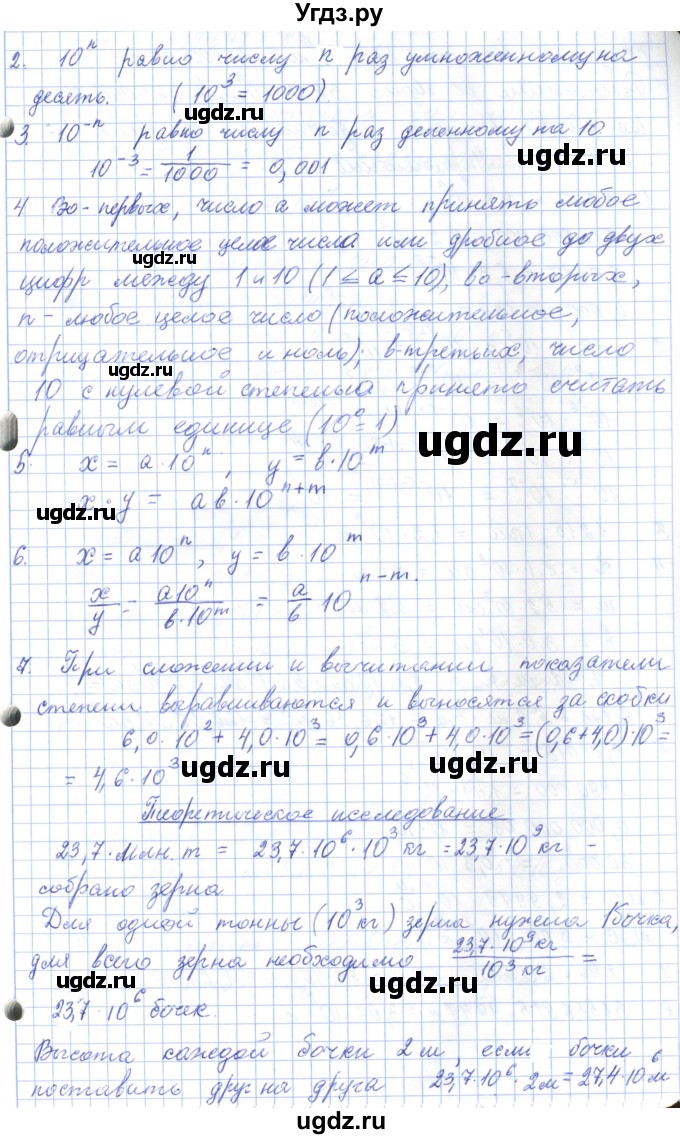 Угдз.ру
2. 10ⁿ равно числу n раз умноженному на
десять. (10³ = 1000)
3. 10⁻ⁿ равно числу n раз деленному на 10
10⁻³ = 1/1000 = 0,001
4 Во-первых, число а может принять любое
положительное целое числа или дробное до двух
цифр между 1 и 10 (1 ≤ a ≤ 10), во-вторых,
n - любое целое число (положительное,
отрицательное и ноль); в-третьих, число
10 с нулевой степенью принято считать
равным единице (10⁰ = 1)
5. x = a·10ⁿ, y = b·10ᵐ
x·y = ab·10ⁿ⁺ᵐ
6. x = a10ⁿ, y = b·10ᵐ
x/y = a10ⁿ/b·10ᵐ = a/b 10ⁿ⁻ᵐ.
7. При сложении и вычитании показатели
степени выравниваются и выносятся за скобки
6,0·10² + 4,0·10³ = 0,6·10³ + 4,0·10³ = (0,6+4,0)·10³ =
= 4,6·10³
Теоретическое исследование
23,7·млн.т = 23,7·10⁶·10³ кг = 23,7·10⁹ кг -
собрано зерна
Для одной тонны (10³ кг) зерна нужена 1 бочка,
для всего зерна необходимо 23,7·10⁹ кг/10³ кг =
23,7·10⁶ бочек.
Высота каждой бочки 2 м, если бочки
поставить друг на друга 23,7·10⁶·2м = 27,4·10⁶ м
ugdz.ru
ugdz.ru
ugdz.ru
ugdz.ru
ugdz.ru
ugdz.ru
ugdz.ru
ugdz.ru
ugdz.ru
ugdz.ru
ugdz.ru
ugdz.ru
ugdz.ru
ugdz.ru